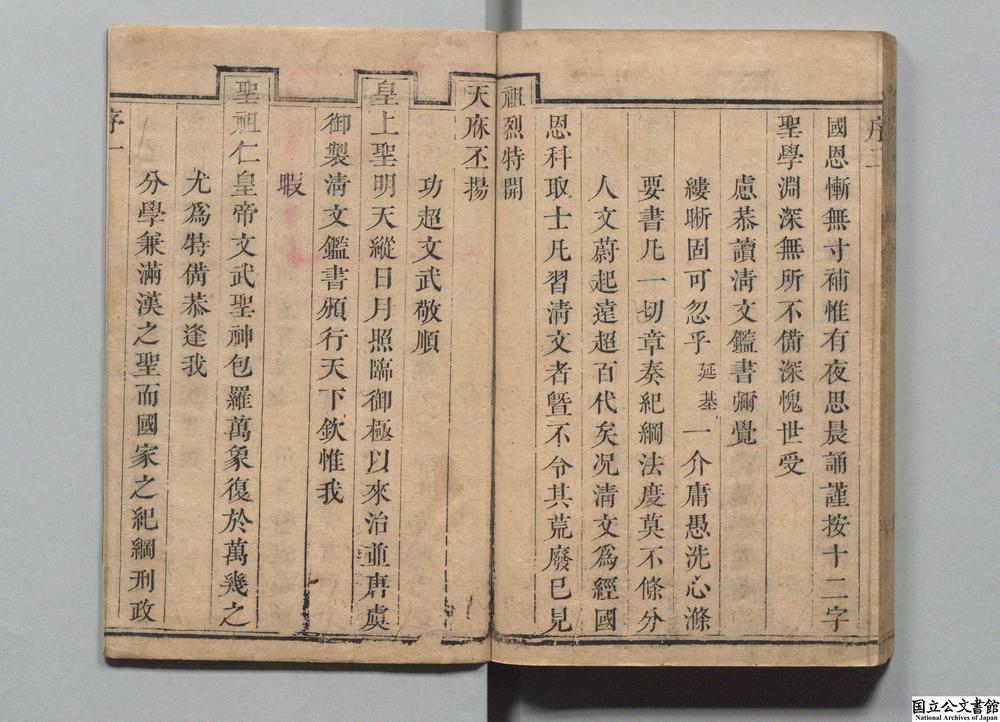 序一
分學兼滿漢之聖而國家之紀綱刑政
尤爲特備恭逢我
聖祖仁皇帝文武聖神包羅萬象復於萬幾之
暇
御製淸文鑑書頒行天下欽惟我
皇上聖明天縱日月照臨御極以來治並唐虞
功超文武敬順
天庥丕揚
祖烈特開
恩科取士凡習淸文者曁不令其荒廢已見
人文蔚起遠超百代矣况淸文爲經國
要書凡一切章奏紀綱法度莫不條分
縷晰固可忽乎延基一介庸愚洗心滌
慮恭讀淸文鑑書彌覺
聖學淵深無所不備深愧世受
國恩慚無寸補惟有夜思晨誦謹按十二字
序二
国立公文書館
National Archives of Japan